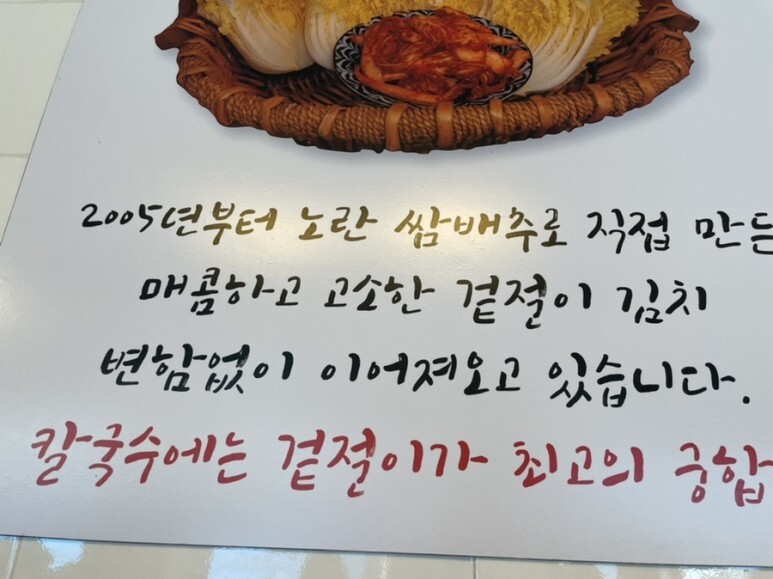 2005년부터 노란 쌈배추로 직접 만든
매콤하고 고소한 겉절이 김치
변함없이 이어져오고 있습니다.
칼국수에는 겉절이가 최고의 궁합